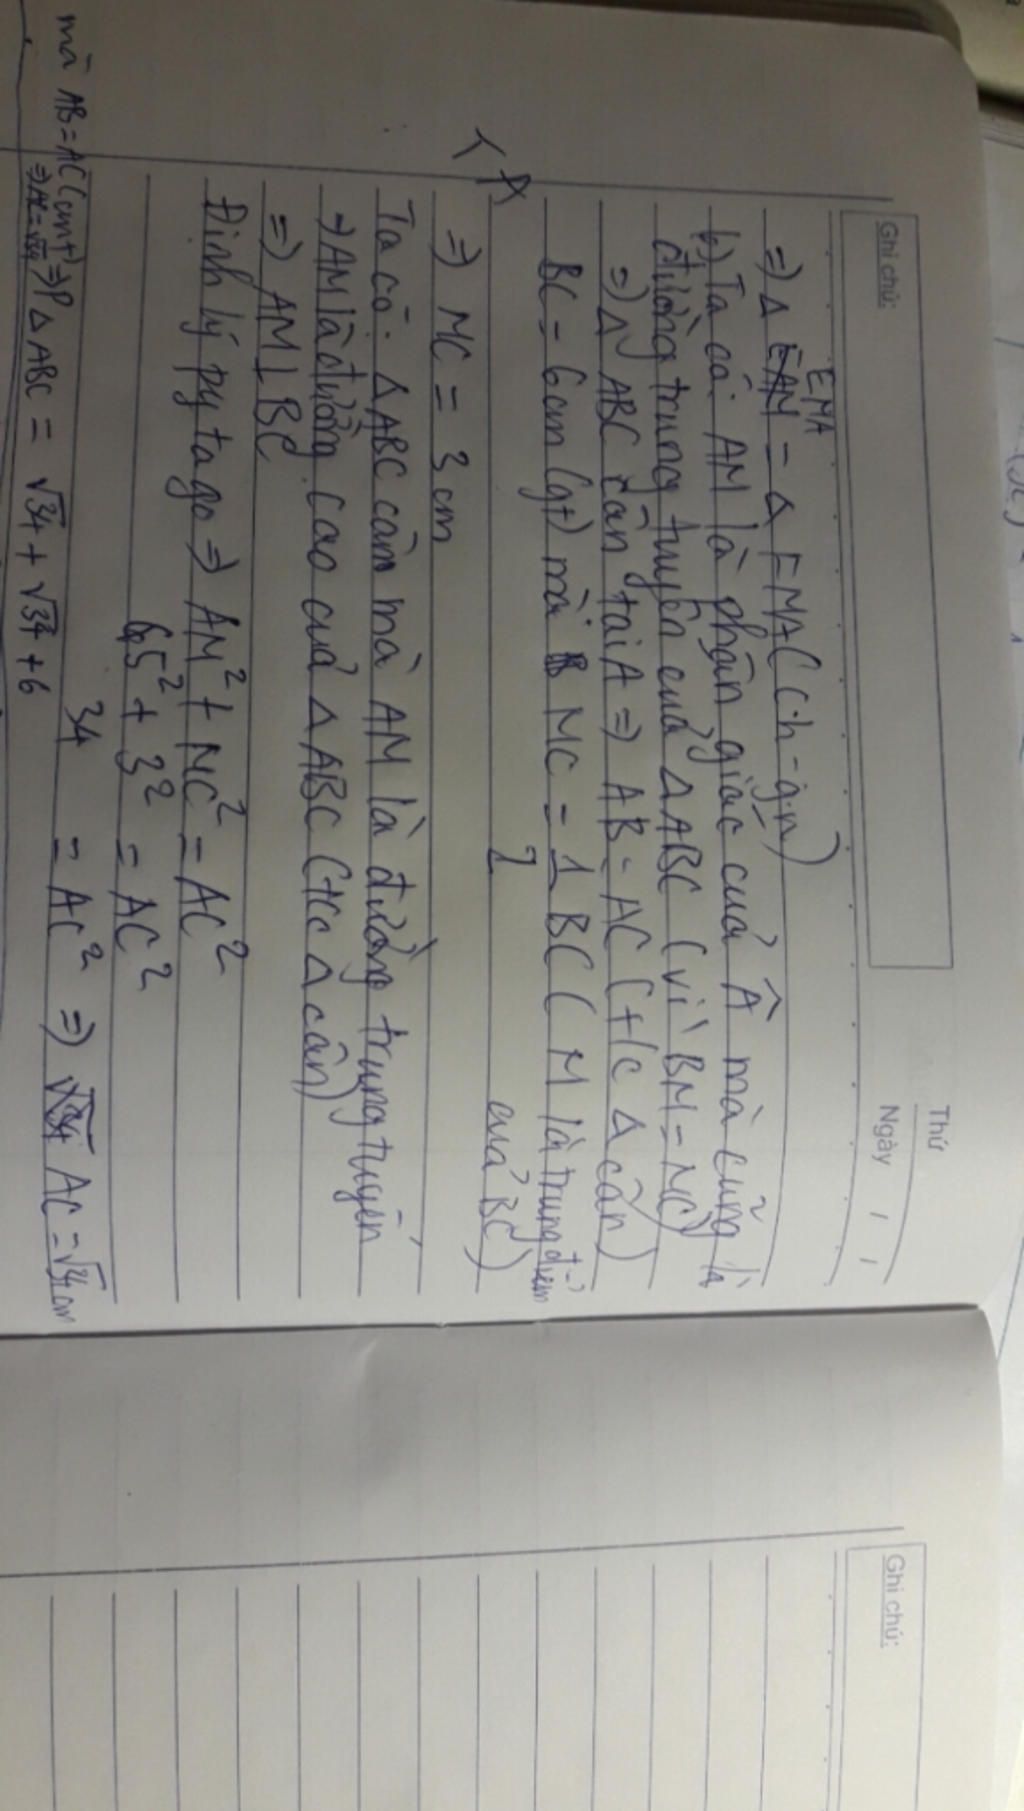 Thứ
Ghi chú:
Ngày / /
EMA
=) Δ EAM = Δ FMA (ch-gn)
b) Ta có: AM là phân giác của Â mà cũng là
đường trung tuyến của ΔABC (vì BM = MC)
=) Δ ABC cân tại A => AB = AC (t/c Δ cân)
BC = 6cm (gt) mà MC = 1 BC (M là trung điểm
2 của BC)
=) MC = 3 cm
Ta có: ΔABC cân mà AM là đường trung tuyến
=> AM là đường cao của Δ ABC (t/c Δ cân)
=) AM ⊥ BC
Định lý pytago => AM² + MC² = AC²
5² + 3² = AC²
34 = AC² => AC = √34 cm
mà AB = AC (cmt) => P Δ ABC = √34 + √34 + 6
=> AC = √34
Ghi chú: